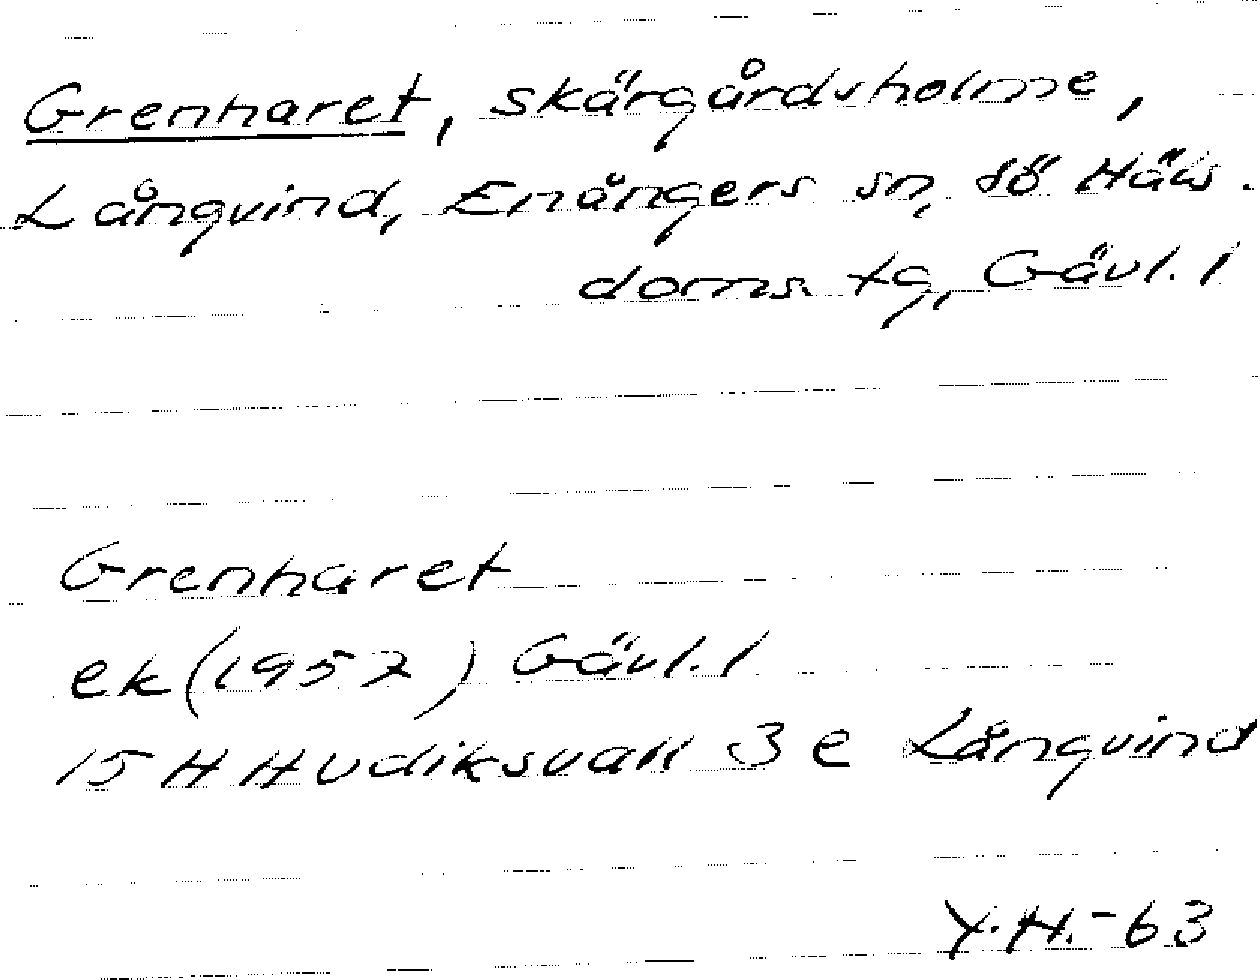 Grenharet, skärgårdsholme,
Långvind, Enångers sn, sö Häls.
doms. tg, Gävl. l
Grenharet
ek (1957) Gävl. l
15 H Hudiksvall 3 e Långvind
Y.H.-63